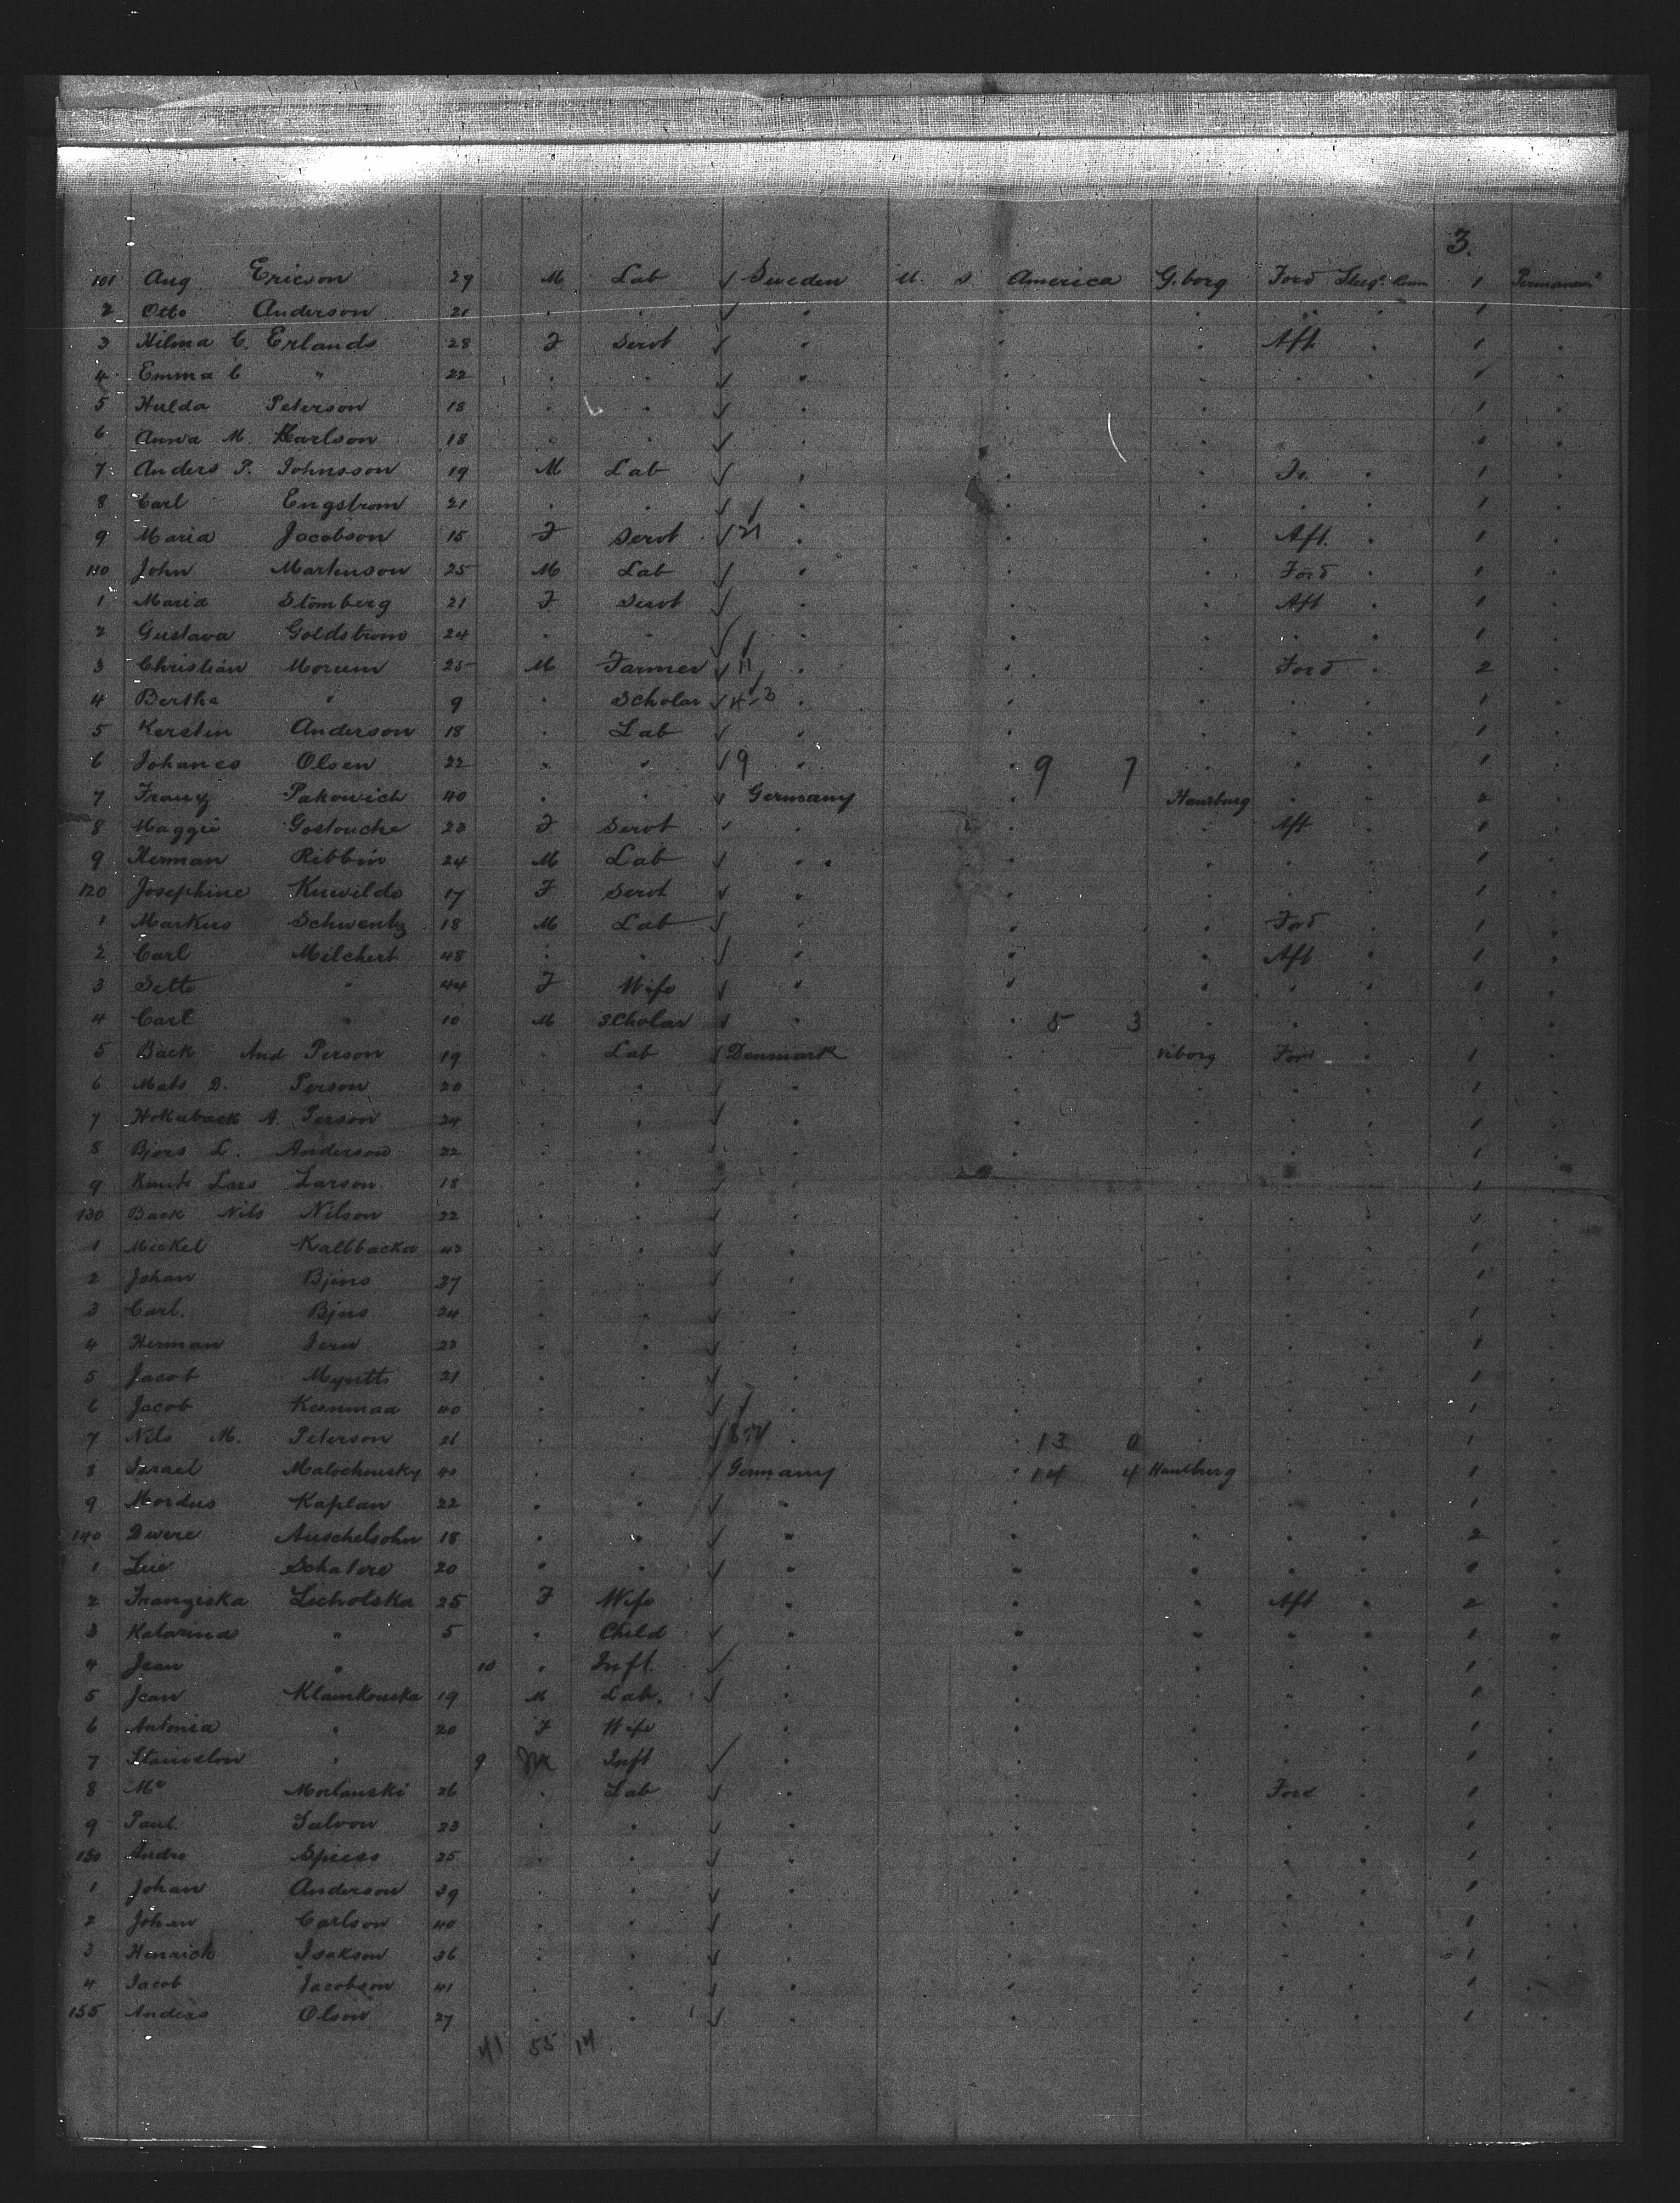 3.
101 Aug Ericson 29 M Lab √ Sweden U. S America G.borg Ford Steeg. Room 1 Permanent
2 Otto Anderson 21 . . √ . . . . . 1 .
3 Hilma C. Erlands 28 F Servt √ . . . Aft . 1 .
4 Emma C " 22 . . √ . . . . . 1 .
5 Hulda Peterson 18 . . √ . . . . . 1 .
6 Anna M. Karlson 18 . . √ . . . . . 1 .
7 Anders P. Johnsson 19 M Lab √ . . . Fo. . 1 .
8 Carl Engstrom 21 . . √ . . . . . 1 .
9 Maria Jacobson 15 F Servt √ 21 . . . Aft. . 1 .
110 John Martenson 25 M Lab √ . . . Ford . 1 .
1 Maria Stomberg 21 F Servt √ . . . Aft . 1 .
2 Gustava Goldstrom 24 . . √ . . . . . 1 .
3 Christian Morum 25 M Farmer √ 11 . . . Ford . 2 .
4 Bertha " 9 . Scholar √ . . . . . 1 .
5 Kerstin Anderson 18 . Lab √ . . . . . 1 .
6 Johanes Olsen 22 . . √ 9 . . 9 7 . . . 1 .
7 Franz Pakowich 40 . . √ Germany . Hamburg . . 2 .
8 Maggie Gostouche 23 F Servt √ . . . Aft . 1 .
9 Herman Ribbin 24 M Lab √ . . . . . 1 .
120 Josephine Kuwilds 17 F Servt √ . . . . . 1 .
1 Markus Schwentz 18 M Lab √ . . . Ford . 1 .
2 Carl Milchert 48 . . √ . . . Aft . 1 .
3 Sette " 44 F Wife √ . . . . . 1 .
4 Carl " 10 M Scholar √ . . 5 3 . . . . .
5 Back And Person 19 . Lab √ Denmark . Viborg Ford . 1 .
6 Mats D. Person 20 . . √ . . . . . 1 .
7 Hokaback A. Person 24 . . √ . . . . . 1 .
8 Bjors L. Anderson 22 . . √ . . . . . 1 .
9 Kunts Lars Larson 18 . . √ . . . . . 1 .
130 Back Nils Nilson 22 . . √ . . . . . 1 .
1 Mickel Kallbacka 42 . . √ . . . . . 1 .
2 Johan Bjens 37 . . √ . . . . . 1 .
3 Carl. Bjns 24 . . √ . . . . . 1 .
4 Herman Jern 23 . . √ . . . . . 1 .
5 Jacob Myntti 21 . . √ . . . . . 1 .
6 Jacob Kesnmaa 40 . . √ . . . . . 1 .
7 Nils M. Peterson 21 . . √ . . 13 0 . . . 1 .
8 Israel Malochousky 40 . . √ Germany . 14 4 Hamburg . . 1 .
9 Mordus Kaplan 22 . . √ " . . . . 1 .
140 Dwere Auschelsohn 18 . . √ " . . . . 2 .
1 Leie Schatere 20 . . √ " . . . . 1 .
2 Franziska Licholska 25 F Wife . . . Aft . 2 .
3 Katarina " 5 . Child √ . . . . . 1 .
4 Jean " 10 . Inft. √ . . . . . 1 .
5 Jean Klamkouska 19 M Lab. √ . . . . . 1 .
6 Antonia " 20 F Wife . . . . . 1 .
7 Stanislow " 9 M Inft √ . . . . . 1 .
8 Mr Morlanski 26 . Lab √ . . . Ford . 1 .
9 Paul. Salvon 23 . . √ . . . . . 1 .
150 Andro Spiess 25 . . √ . . . . . 1 .
1 Johan Anderson 39 . . √ . . . . . 1 .
2 Johan Carlson 40 . . √ . . . . . 1 .
3 Henrich Isakson 36 . . √ . . . . . 1 .
4 Jacob Jacobson 41 . . √ . . . . . 1 .
155 Anders Olson 27 . . √ . . . . . 1 .
41 55 14